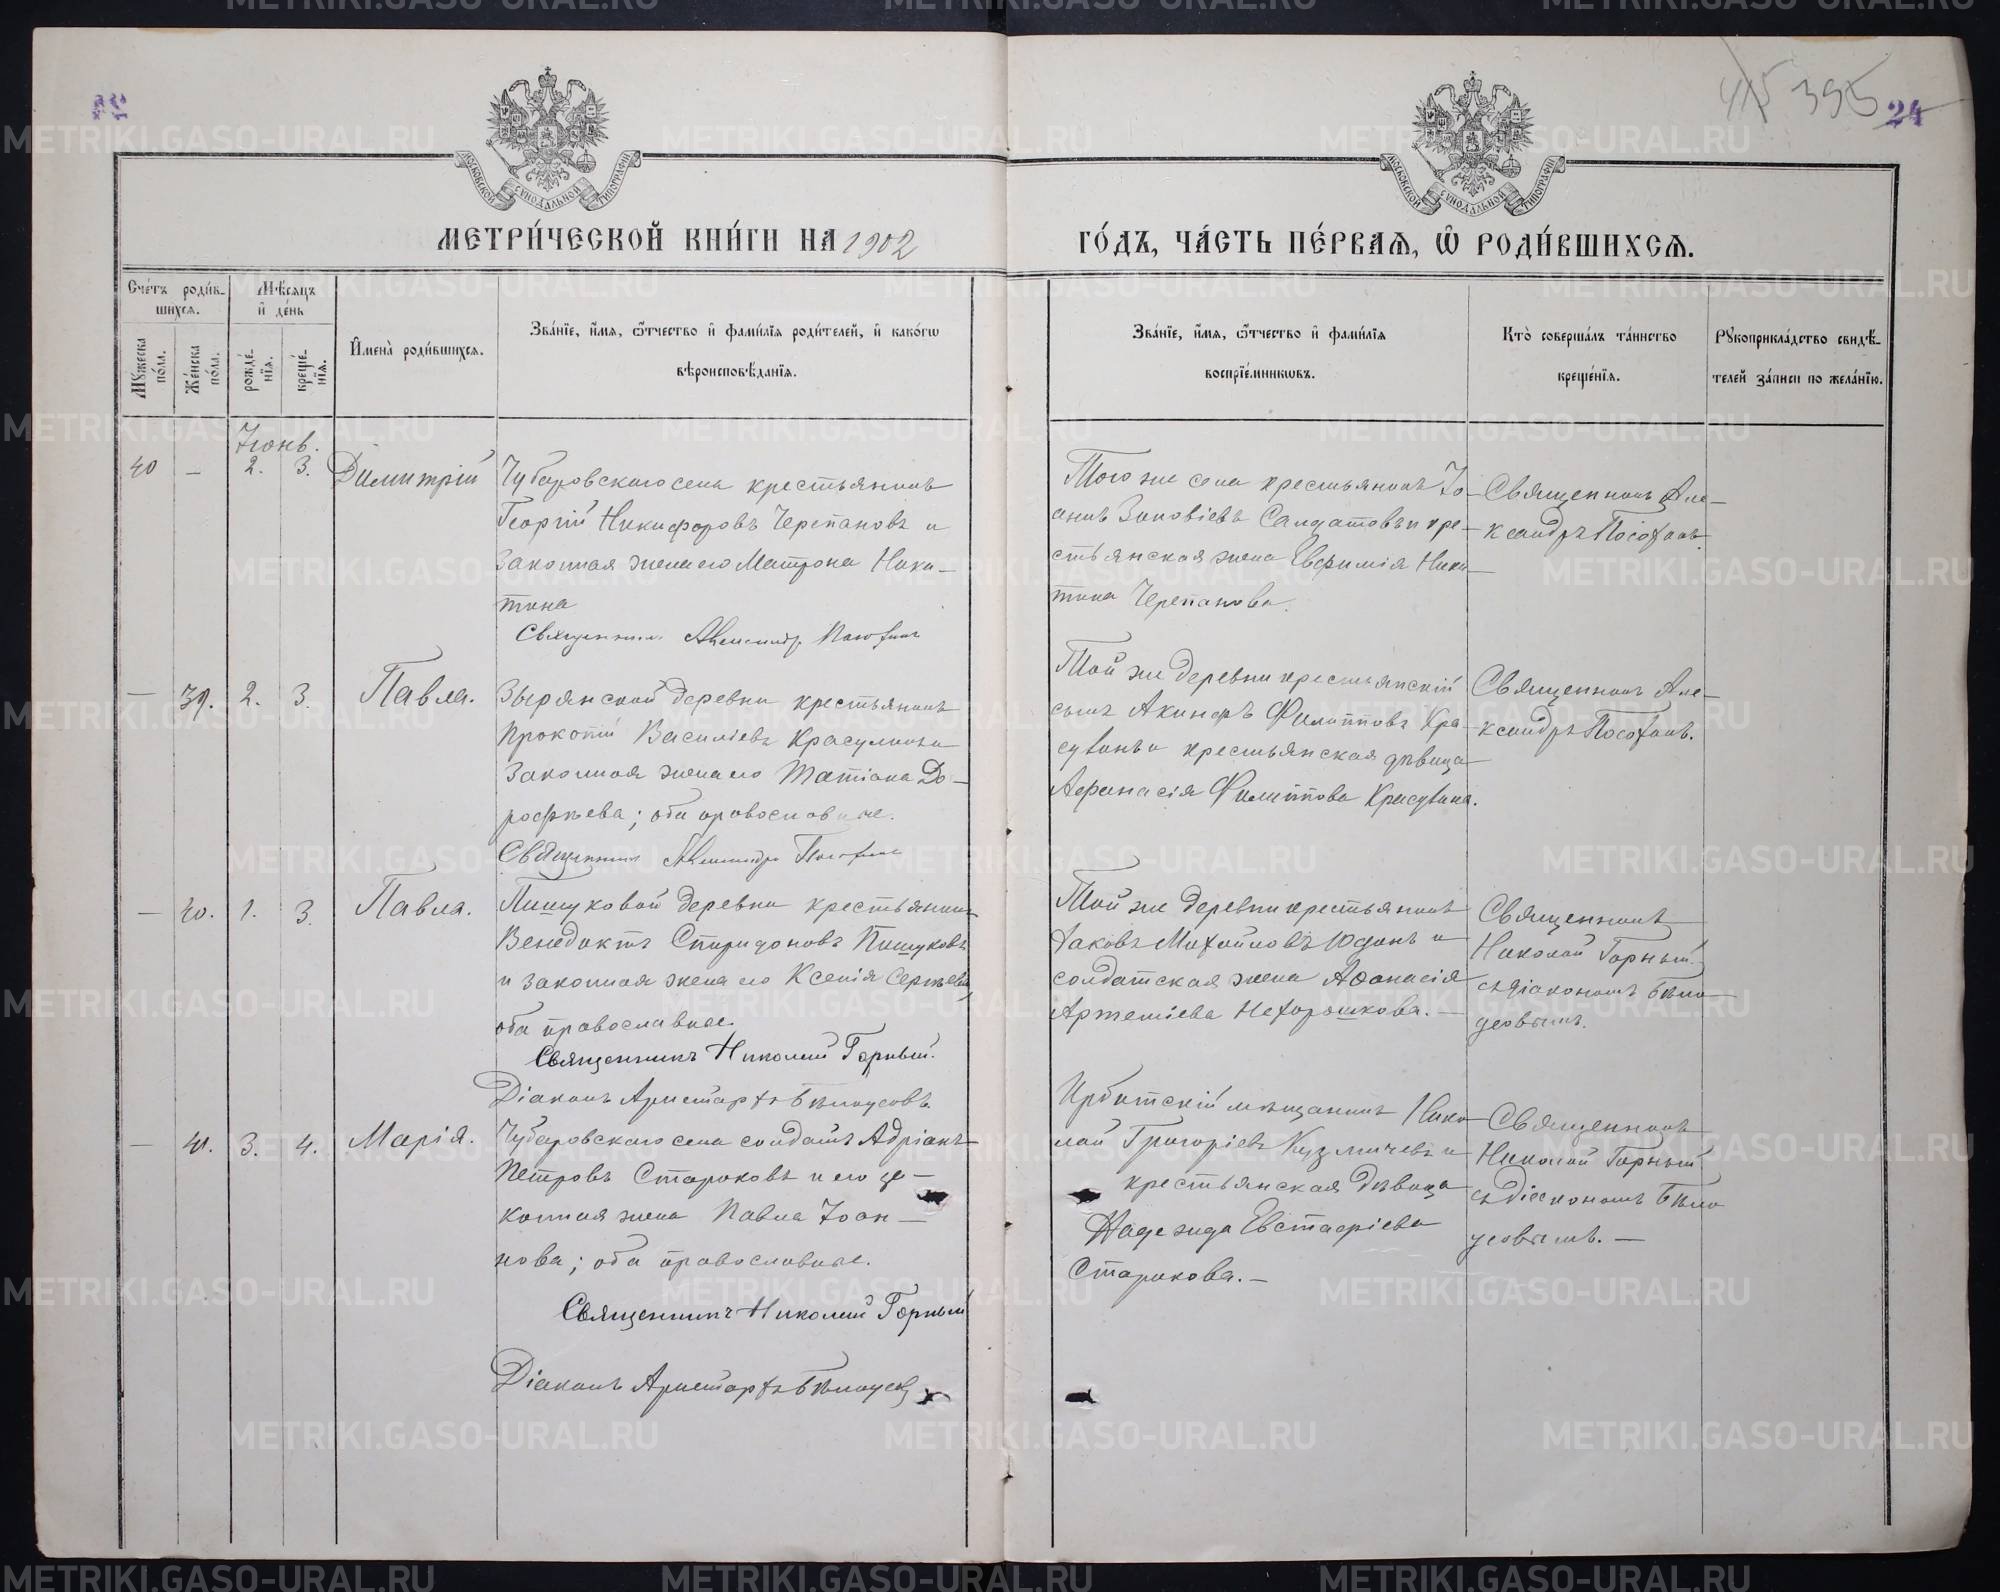 415 395 24
МОСКОВСКОЙ СѴНОДАЛЬНОЙ ТИПОГРАФІИ
МОСКОВСКОЙ СѴНОДАЛЬНОЙ ТИПОГРАФІИ
МЕТРИ́ЧЕСКОЙ КНИ́ГИ НА 1902
ГО́ДЪ, ЧА́СТЬ ПЕ́РВАѦ, Ѡ҆ РОДИ́ВШИХСѦ.
Сче́тъ роди́в-
шихсѧ.
Мѣ́сѧцъ
и҆ де́нь
Мꙋ́жеска
по́ла.
Же́нска
по́ла.
рожде́-
нїѧ.
креще́-
нїѧ.
И҆мена̀ роди́вшихсѧ.
Зва́нїе, и҆́мѧ, ѻ҆́тчество и҆ фами́лїѧ роди́телей, и҆ како́гѡ
вѣроисповѣ́данїѧ.
Зва́нїе, и҆́мѧ, ѻ҆́тчество и҆ фами́лїѧ
воспрїе́мникѡвъ.
Кто̀ соверша́лъ та́инство
креще́нїѧ.
Рꙋкоприкла́дство свидѣ́-
телей за́писи по жела́нїю.
Іюнь.
40 — 2. 3. Димитрій
Чубаровскаго села крестьянинъ
Георгій Никифоровъ Черепановъ и
законная жена его Матрона Ники-
тина
Священникъ Александръ Посохинъ
Того же села крестьянинъ Іо-
аннъ Зиновіевъ Салдатовъ и кре-
стьянская жена Евфимія Ники-
тина Черепанова.
Священникъ Але-
ксандръ Посохинъ.
— 39. 2. 3. Павла.
Зырянской деревни крестьянинъ
Прокопій Василіевъ
законная жена его Татіана До-
рофѣева; оба православные.
Священникъ Александръ Посохинъ
Той же деревни крестьянскій
сынъ Акинфъ Филипповъ Кра-
сухинъ и крестьянская дѣвица
Афанасія Филиппова Красухина.
Священникъ Але-
ксандръ Посохинъ.
— 40. 1. 3. Павла.
Пишуковой деревни крестьянинъ
Венедиктъ Спиридоновъ Пишуковъ
и законная жена его Ксенія Сергѣева,
оба православные.
Священникъ Николай Горный.
Діаконъ Аристархъ Бѣлоусовъ.
Той же деревни крестьянинъ
Іаковъ Михайловъ Юдинъ и
солдатская жена Аѳанасія
Артеміева Нехорошкова. —
Священникъ
Николай Горный
съ діакономъ Бѣло-
усовымъ.
— 41. 3. 4. Марія.
Чубаровскаго села солдатъ Адріанъ
Петровъ Стариковъ и его за-
конная жена Павла Іоан-
нова; оба православные.
Священникъ Николай Горный
Діаконъ Аристархъ Бѣлоусовъ
Ирбитскій мѣщанинъ Нико-
лай Григоріевъ Кузмичевъ и
крестьянская дѣвица
Надежда Евстафіева
Старикова. —
Священникъ
Николай Горный
съ діакономъ Бѣло
усовымъ. —
METRIKI.GASO-URAL.RU